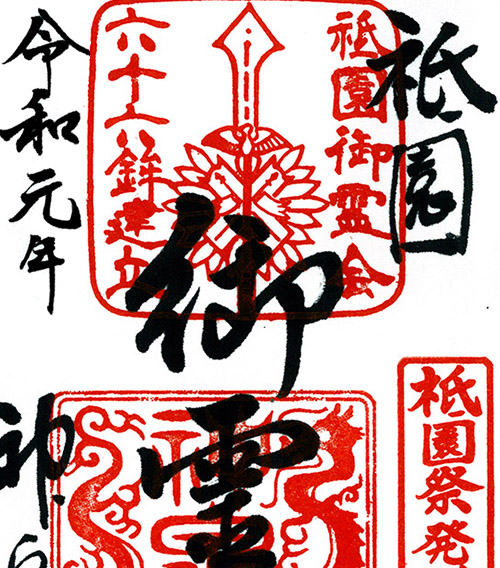 祇園
御霊
令和元年
祇園御霊会
六十六鉾建立
祇園祭発